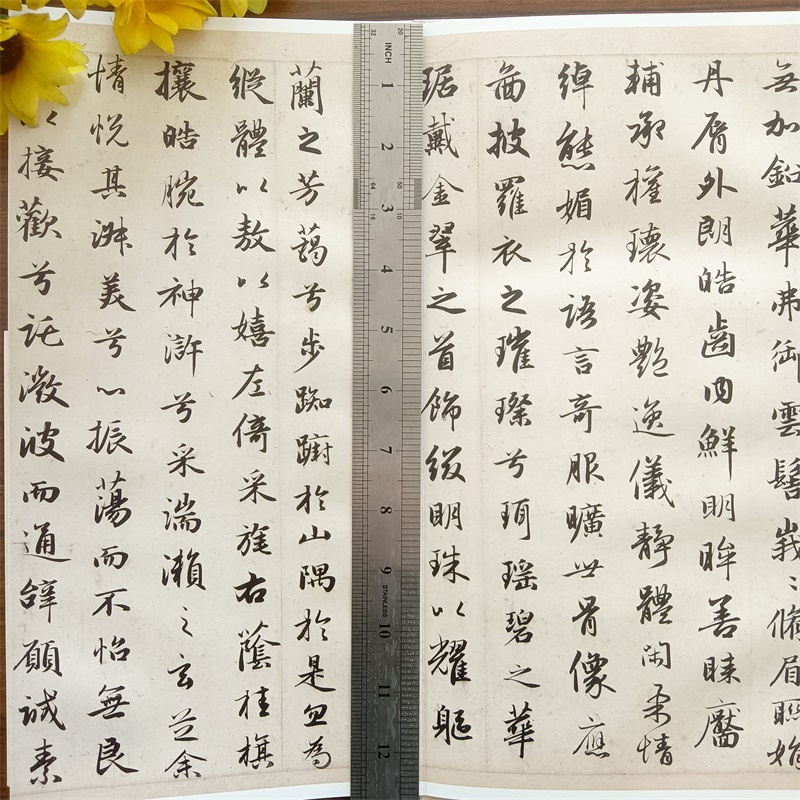 無加鉛華弗御雲髻峩〻脩眉聯娟
丹脣外朗皓齒內鮮明眸善睞靨
輔承權瓌姿艷逸儀靜體閑柔情
綽態媚於語言奇服曠世骨像應
啚披羅衣之璀璨兮珥瑶碧之華
琚戴金翠之首飾綴明珠以耀軀
蘭之芳藹兮步踟躕於山隅於是忽為
縱體以敖以嬉左倚采旄右蔭桂旗
攘皓腕於神滸兮采湍瀨之玄芝余
情悅其淑美兮心振蕩而不怡無良
以接歡兮託微波而通辭願誠素
32 20
INCH
1
2
64 50
16 10
3
4
5
6
7
8
9
STAINLESS
10
11
12